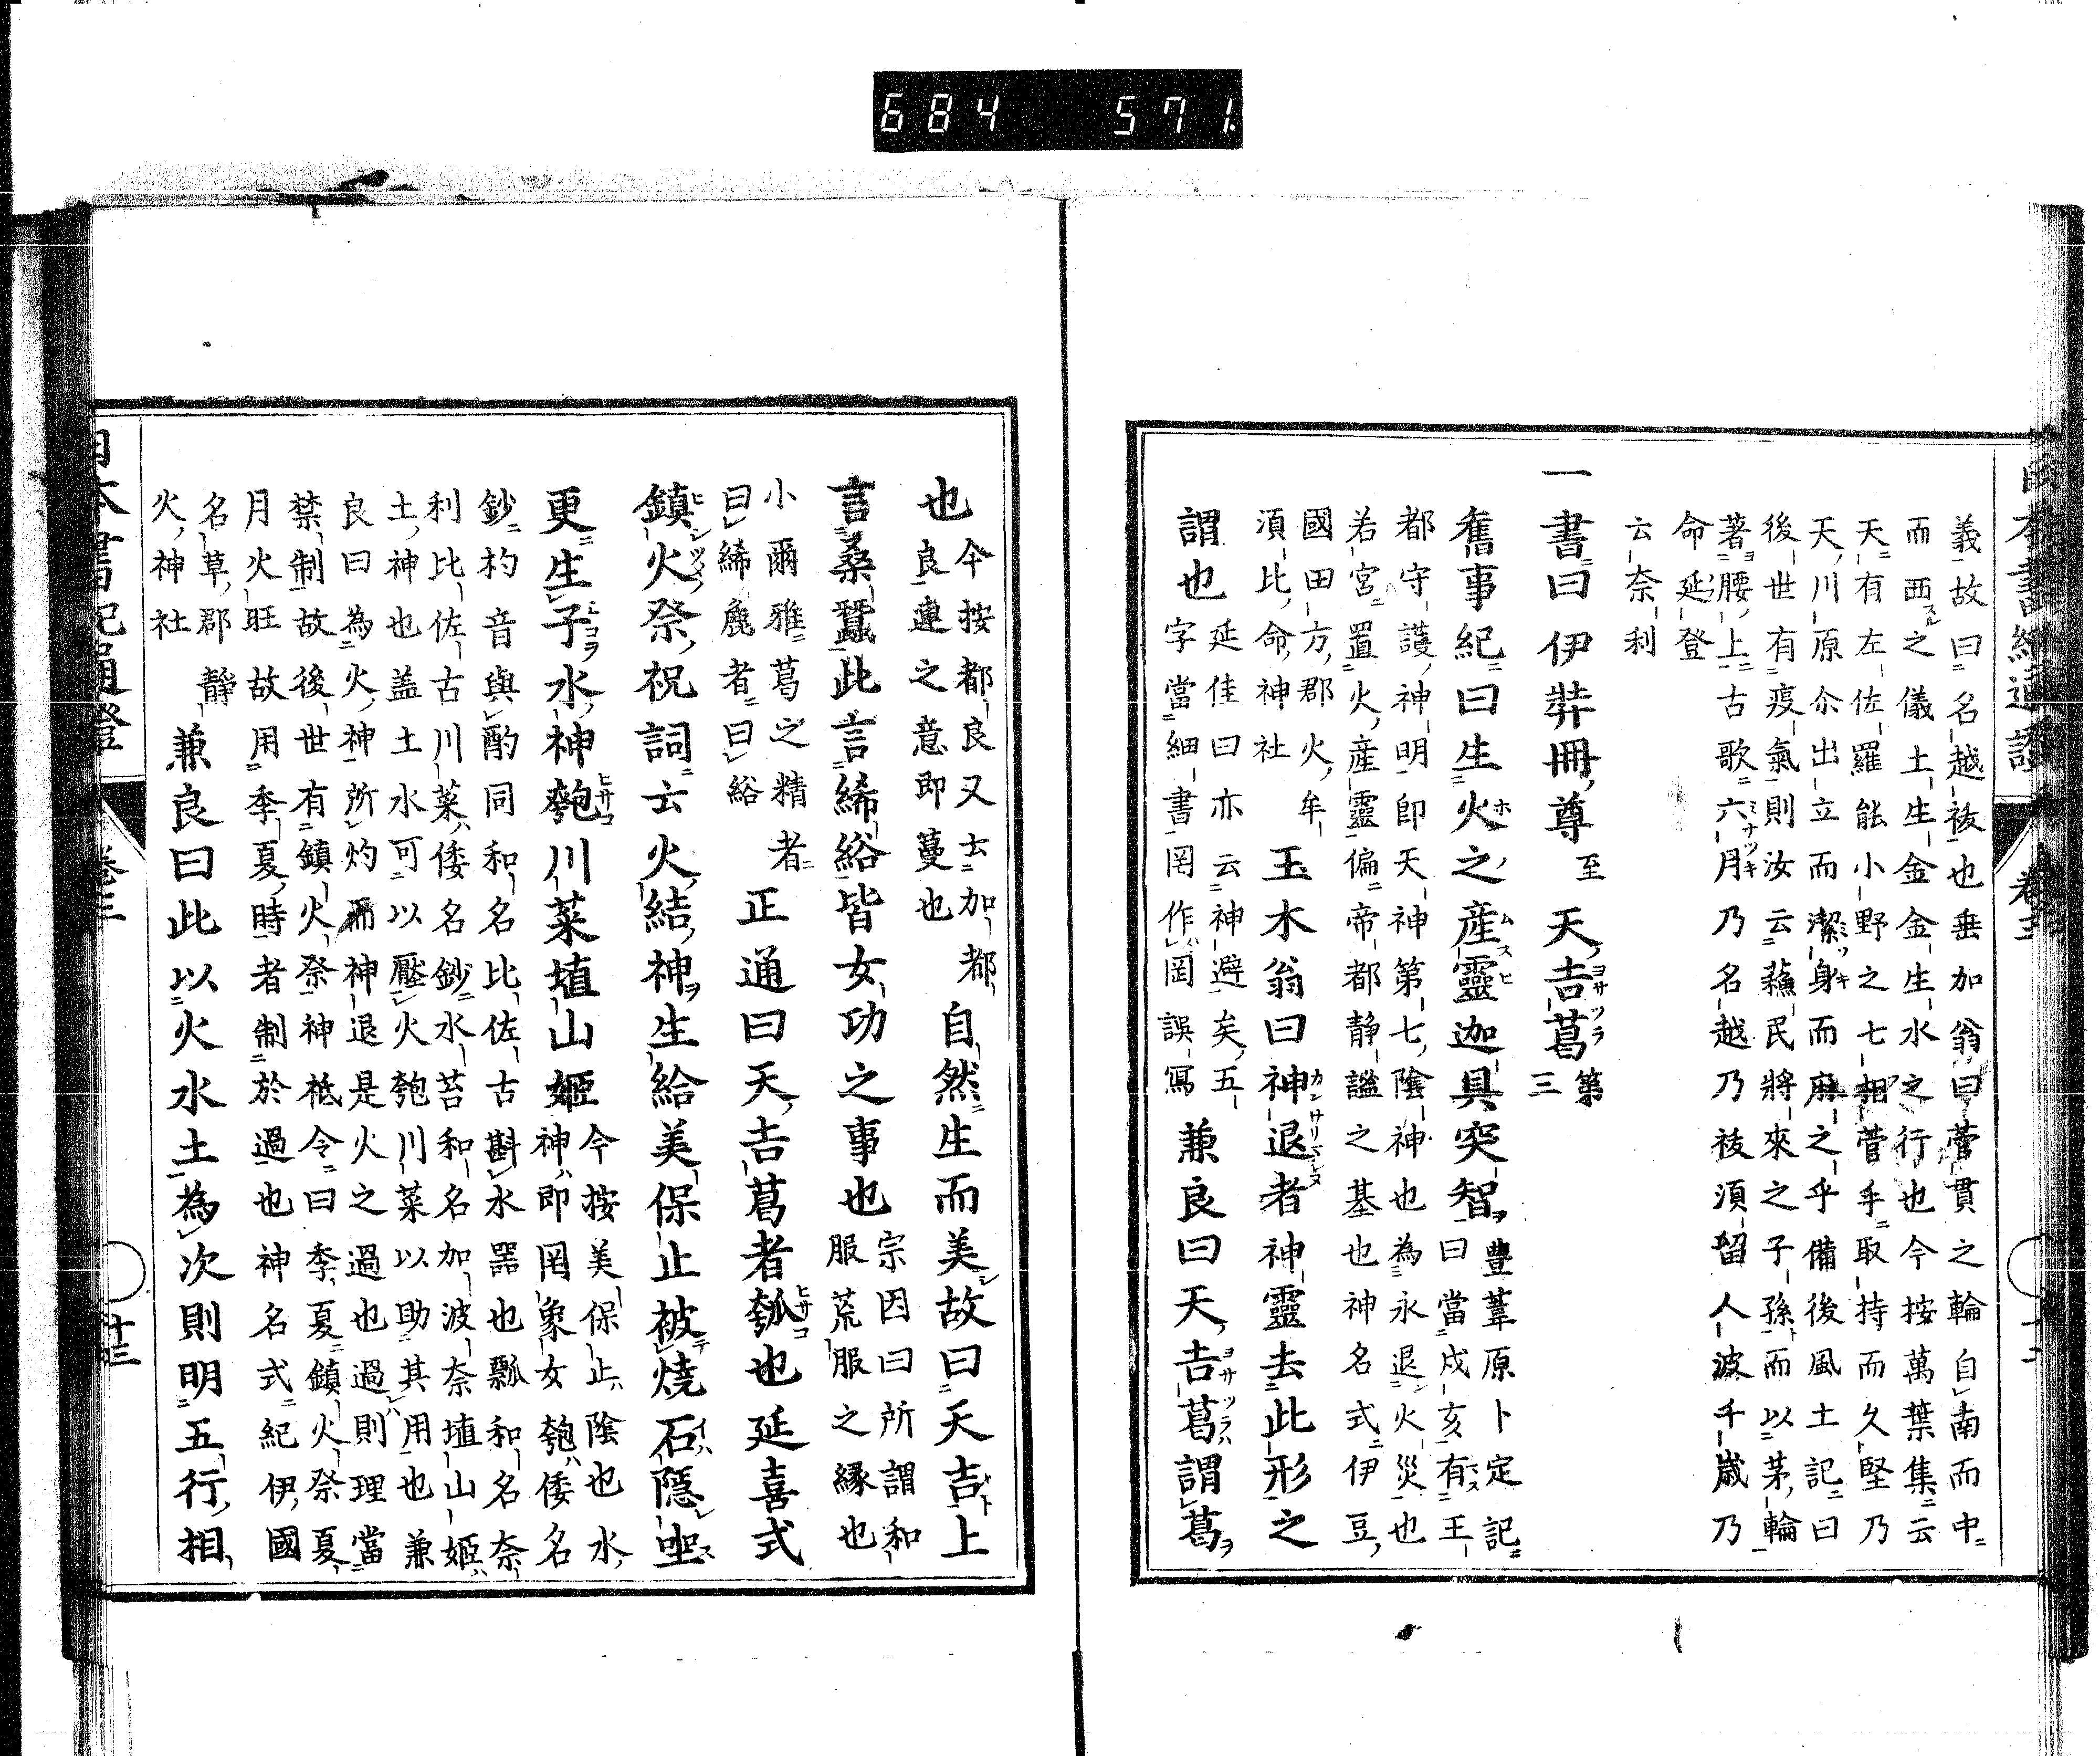 684 571
義故曰名越祓也垂加翁曰菅貫之輪自南而中
而西之儀土生金金生水之行也今按萬葉集云
天有左佐羅能小野之七相菅手取持而久堅乃
天川原尒出立而潔身而麻之乎備後風土記曰
後世有疫氣則汝云蘓民將來之子孫而以茅輪
著腰上古歌六月乃名越乃祓須留人波千歳乃
命延登
云奈利
一書曰伊弉冊尊至天吉葛第三
舊事紀曰生火之産靈迦具突智豐葦原卜定記
曰當戌亥有王
都守護神明即天神第七陰神也為永退火災也
若宮置火産靈偏帝都静謐之基也神名式伊豆
國田方郡火牟
須比命神社
玉木翁曰神退者神靈去此形之
謂也延佳曰亦云神避矣五
字當細書罔作罔誤寫
兼良曰天吉葛謂葛
也今按都良又士加都
良連之意即蔓也
自然生而美故曰天吉上
言桑蠶此言絺綌皆女功之事也宗因曰所謂和
服荒服之縁也
小爾雅葛之精者
曰絺麁者曰綌
正通曰天吉葛者瓠也延喜式
鎮火祭祝詞云火結神生給美保止被燒石隱坐
更生子水神匏川菜埴山姬今按美保止陰也水
神即罔象女匏倭名
鈔杓音與酌同和名比佐古斟水器也瓢和名奈
利比佐古川菜倭名鈔水苔和名加波奈埴山姬
土神也盖土水可以壓火匏川菜以助其用也兼
良曰為火神所灼而神退是火之過也過則理當
禁制故後世有鎮火祭神祗令曰季夏鎮火祭夏
月火旺故用季夏時者制於過也神名式紀伊國
名草郡靜
火神社
兼良曰此以火水土為次則明五行相
日本書紀通證
卷三
十三